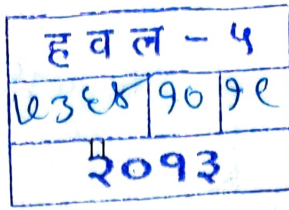 ह व ल - ५
५३६४ १० १९
२०१३